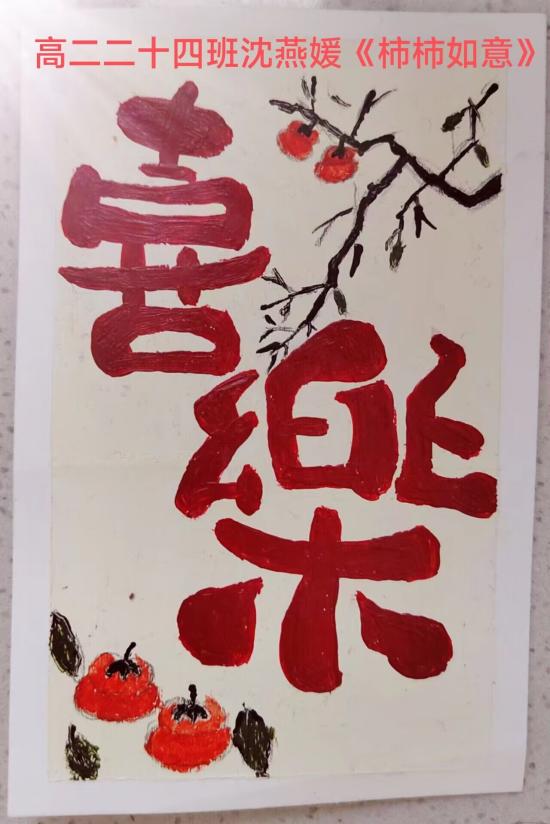 高二二十四班沈燕媛《柿柿如意》
喜
樂